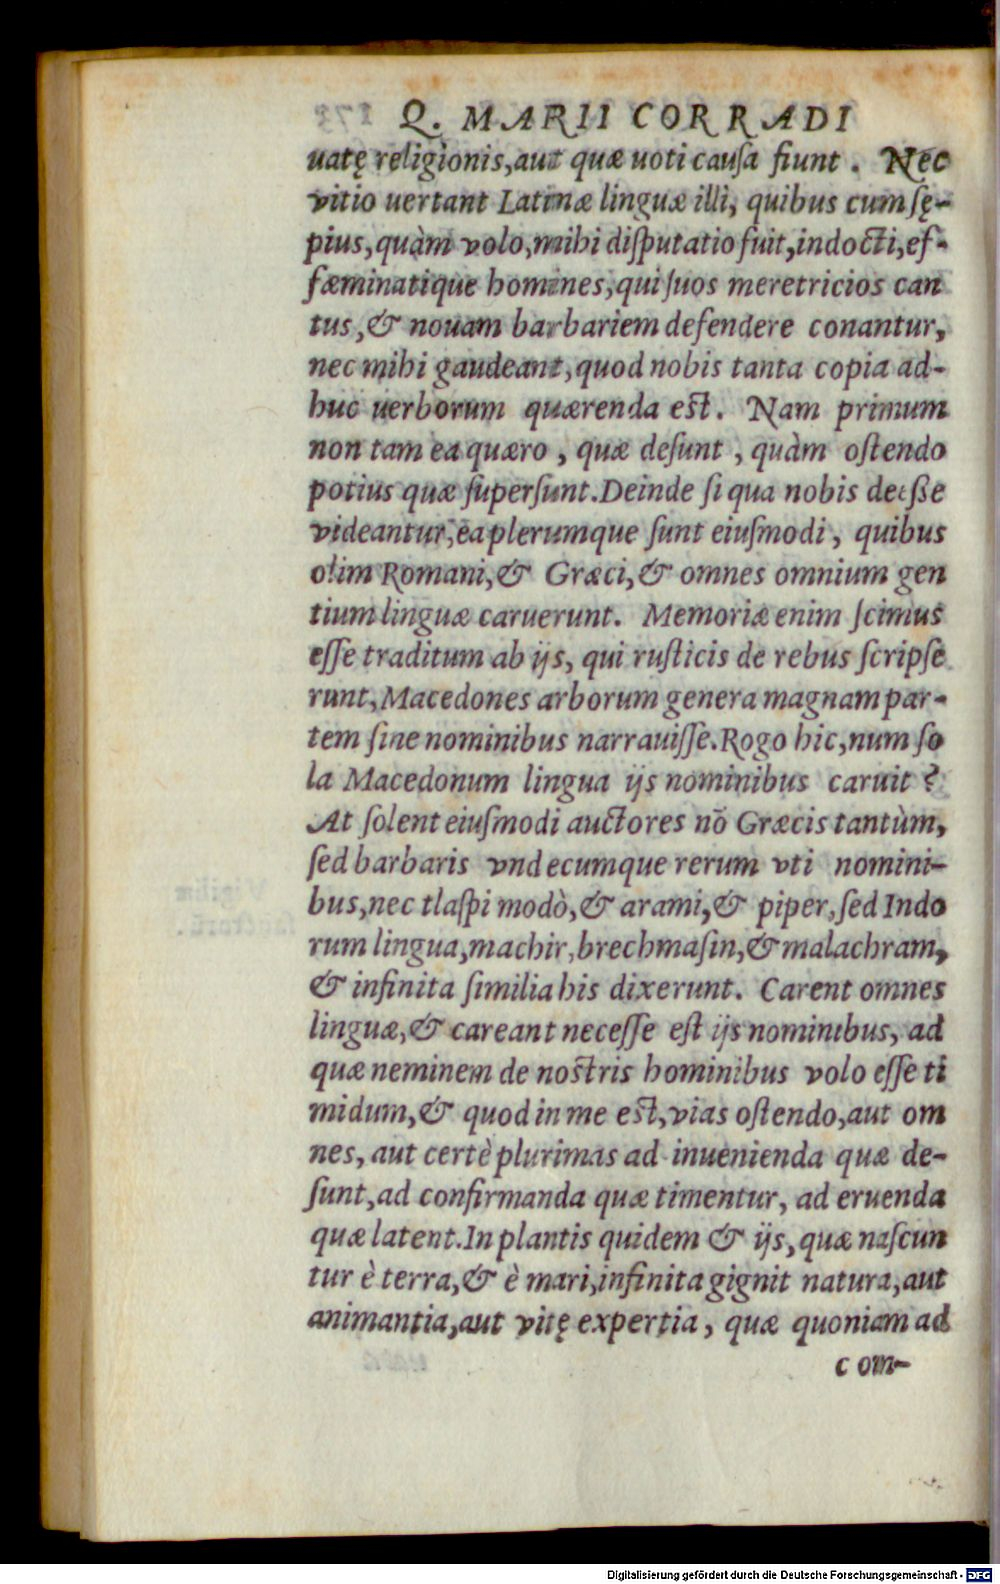 Q. MARII CORRADI
uatę religionis, aut quæ uoti cauſa fiunt. Nec
vitio uertant Latinæ linguæ illi, quibus cum ſę-
pius, quàm volo, mihi diſputatio fuit, indocti, ef-
fæminatique homines, qui ſuos meretricios can
tus, & nouam barbariem defendere conantur,
nec mihi gaudeant, quod nobis tanta copia ad-
huc uerborum quærenda est. Nam primum
non tam ea quæro, quæ deſunt, quàm oſtendo
potius quæ ſuperſunt. Deinde ſi qua nobis deeſſe
videantur, ea plerumque ſunt eiuſmodi, quibus
olim Romani, & Græci, & omnes omnium gen
tium linguæ caruerunt. Memoriæ enim ſcimus
eſſe traditum ab ijs, qui ruſticis de rebus ſcripſe
runt, Macedones arborum genera magnam par-
tem ſine nominibus narrauiſſe. Rogo hic, num ſo
la Macedonum lingua ijs nominibus caruit?
At ſolent eiuſmodi auctores nō Græcis tantùm,
ſed barbaris vndecumque rerum vti nomini-
bus, nec tlaſpi modò, & arami, & piper, ſed Indo
rum lingua, machir, brechmaſin, & malachram,
& infinita ſimilia his dixerunt. Carent omnes
linguæ, & careant neceſſe eſt ijs nominibus, ad
quæ neminem de nostris hominibus volo eſſe ti
midum, & quod in me est, vias oſtendo, aut om
nes, aut certè plurimas ad inuenienda quæ de-
ſunt, ad confirmanda quæ timentur, ad eruenda
quæ latent. In plantis quidem & ijs, quæ naſcun
tur è terra, & è mari, infinita gignit natura, aut
animantia, aut vitę expertia, quæ quoniam ad
com-
Digitalisierung gefördert durch die Deutsche Forschungsgemeinschaft - DFG